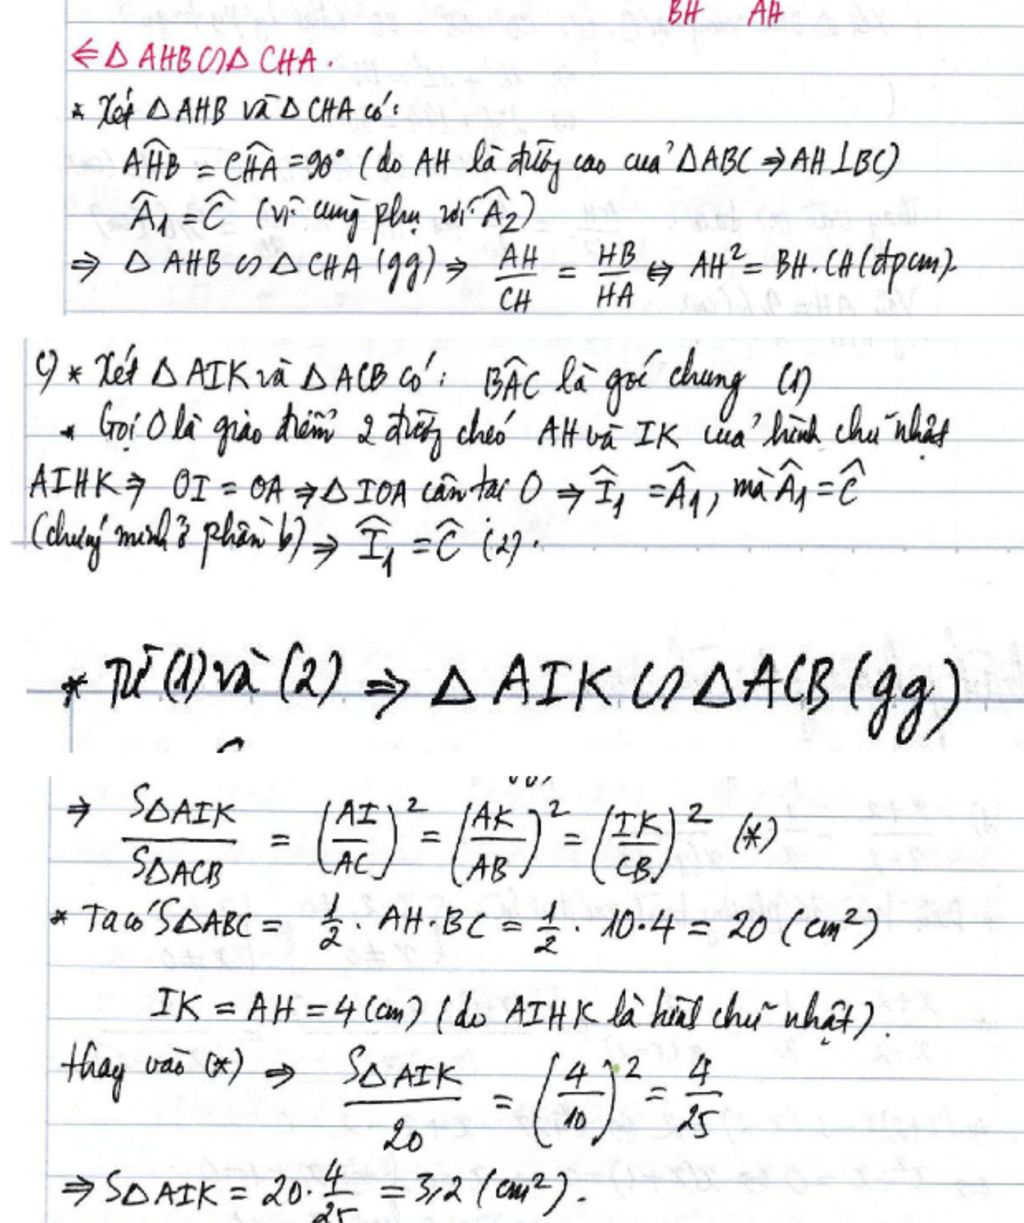 BH AH
⇐ Δ AHB ∽ Δ CHA.
* Xét Δ AHB và Δ CHA có:
AĤB = CĤA = 90° (do AH là đường cao của ΔABC ⇒ AH ⊥ BC)
Â1 = Ĉ (vì cùng phụ với Â2)
⇒ Δ AHB ∽ Δ CHA (gg) ⇒ AH/CH = HB/HA ⇔ AH² = BH.CH (đpcm).
c) * Xét Δ AIK và Δ ACB có: BÂC là góc chung (1)
* Gọi O là giao điểm 2 đường chéo AH và IK của hình chữ nhật
AIHK ⇒ OI = OA ⇒ Δ IOA cân tại O ⇒ Î1 = Â1, mà Â1 = Ĉ
(chứng minh ở phần b) ⇒ Î1 = Ĉ (2).
* Từ (1) và (2) ⇒ Δ AIK ∽ Δ ACB (gg)
⇒ SΔAIK/SΔACB = (AI/AC)² = (AK/AB)² = (IK/CB)² (*)
* Ta có SΔABC = 1/2 . AH.BC = 1/2 . 10.4 = 20 (cm²)
IK = AH = 4 (cm) (do AIHK là hình chữ nhật).
thay vào (*) ⇒ SΔAIK/20 = (4/10)² = 4/25
⇒ SΔAIK = 20.4/25 = 3,2 (cm²).